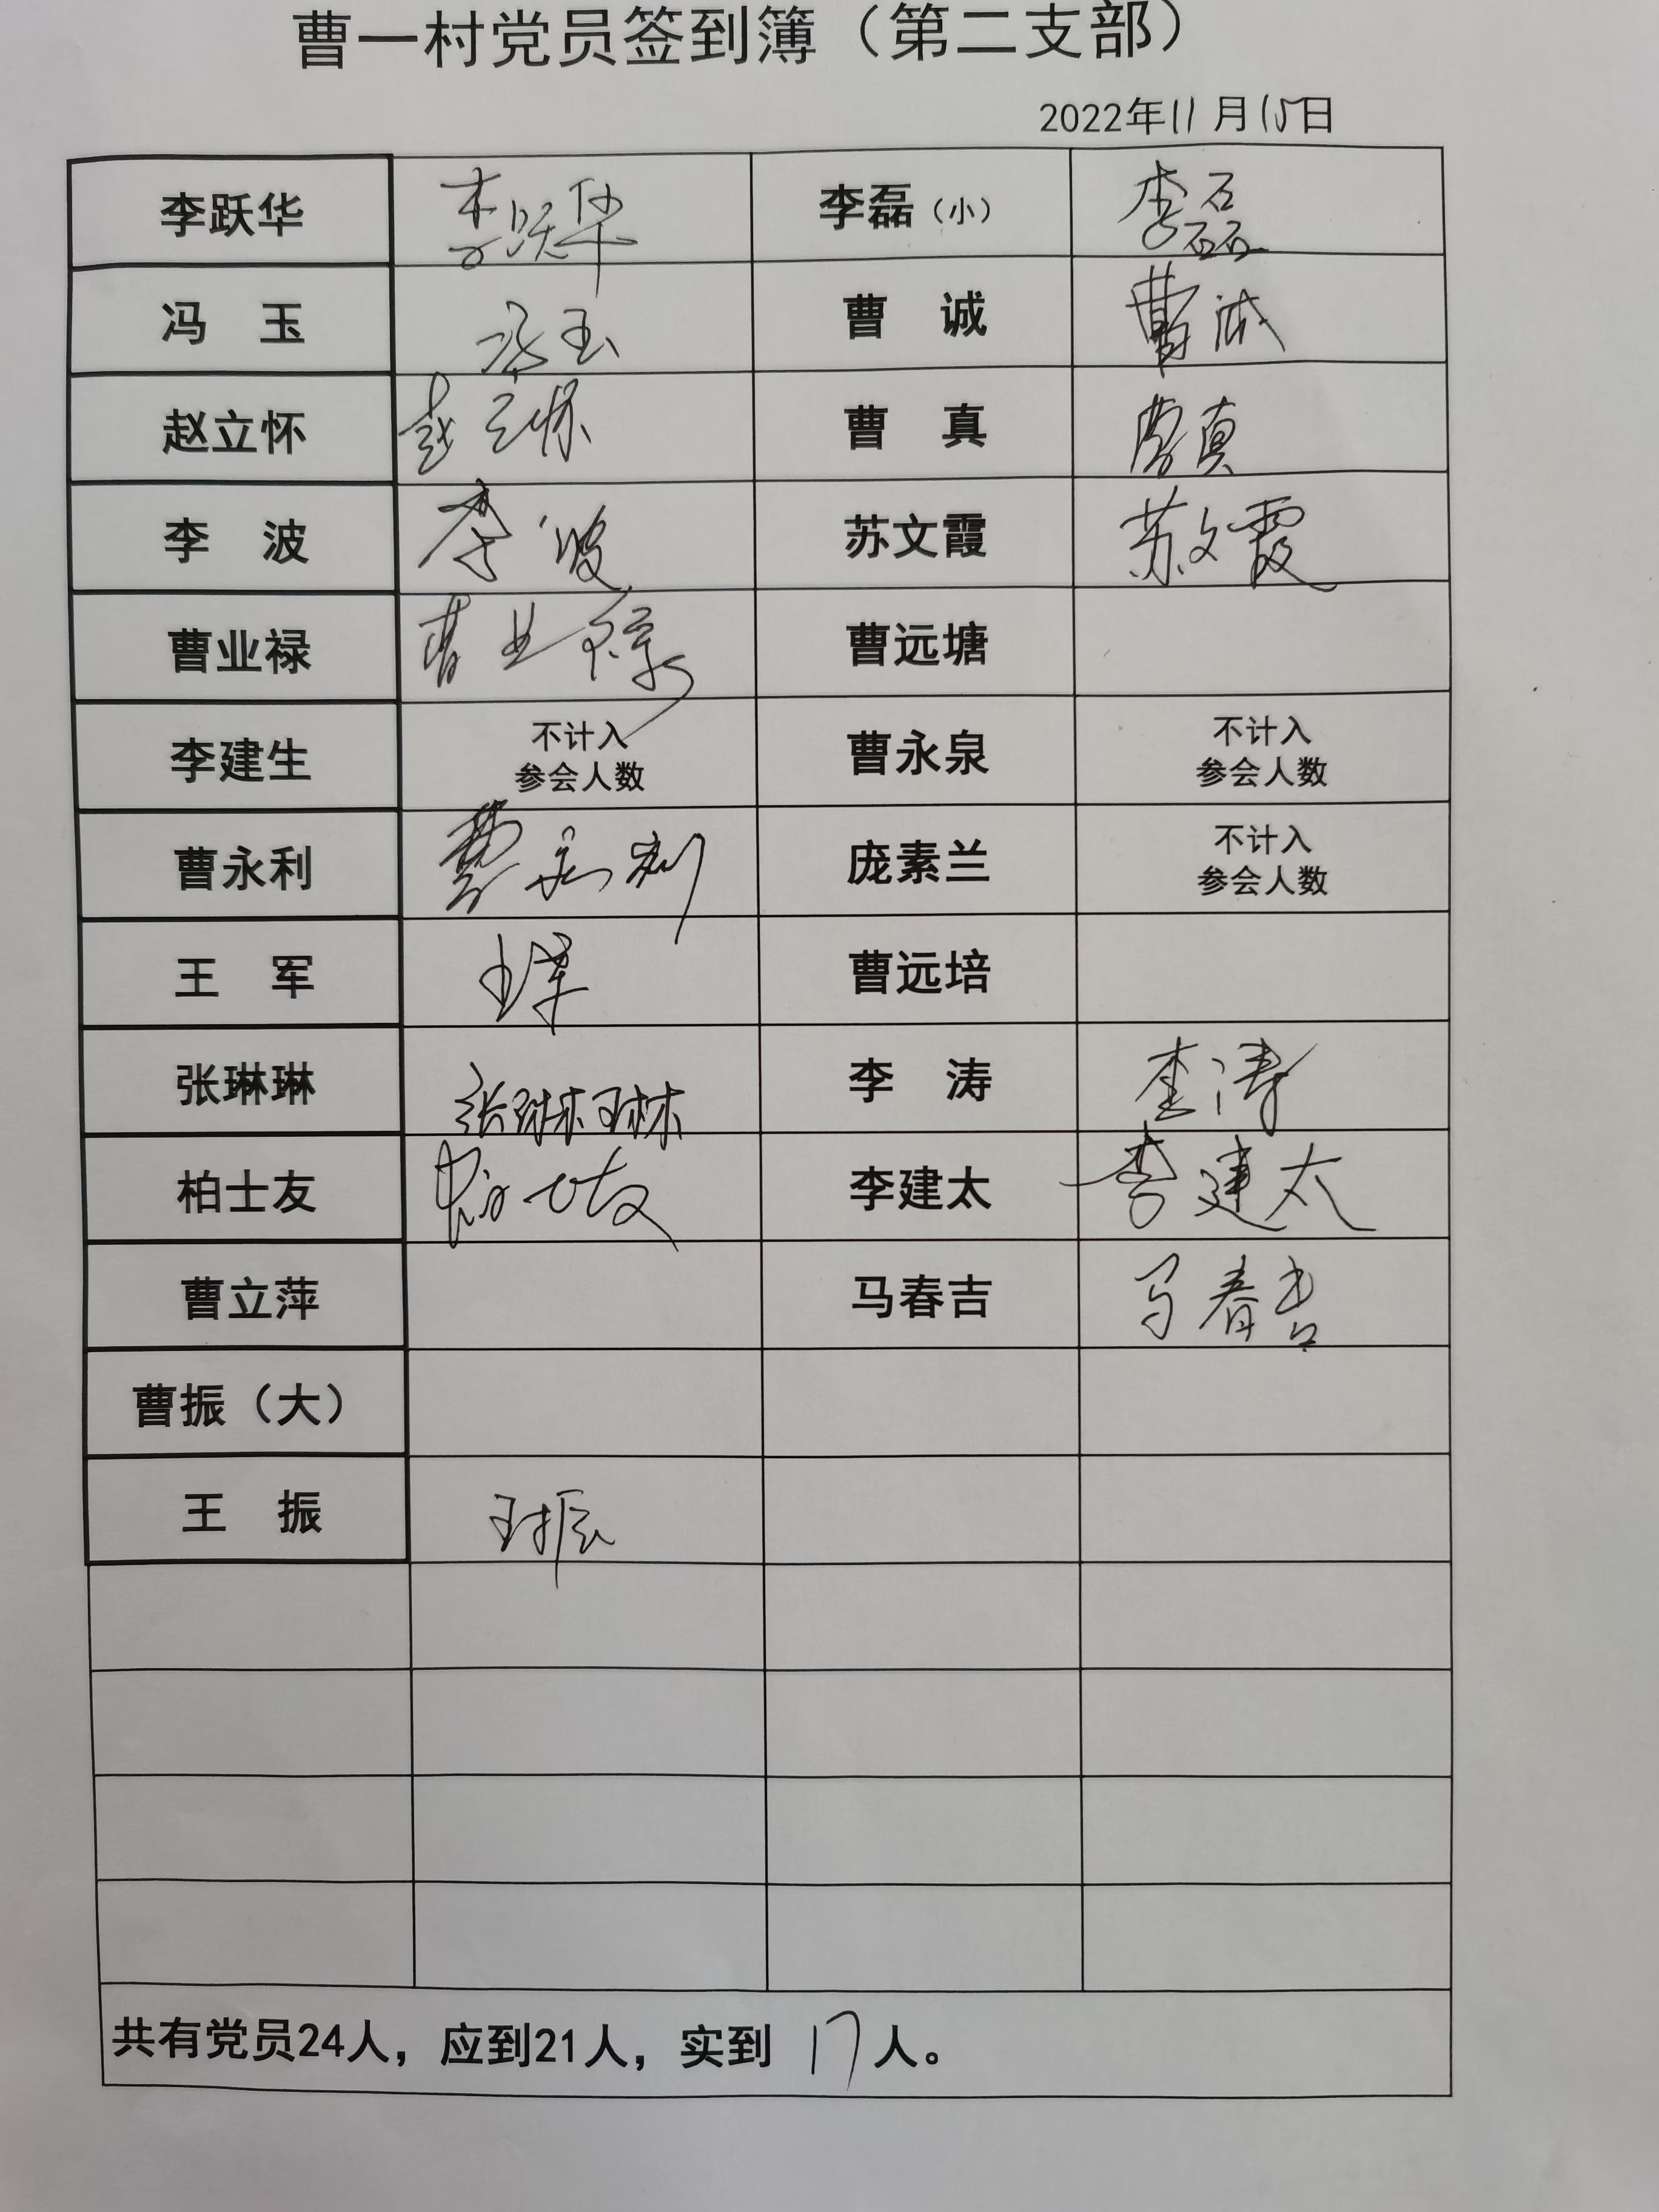 曹一村党员签到簿（第二支部）
2022年11月15日
李跃华 李跃华 李磊（小） 李磊
冯 玉 冯玉 曹 诚 曹诚
赵立怀 赵立怀 曹 真 曹真
李 波 李波 苏文霞 苏文霞
曹业禄 曹业禄 曹远塘
李建生 不计入 曹永泉 不计入
参会人数 参会人数
曹永利 曹永利 庞素兰 不计入
参会人数
王 军 王军 曹远培
张琳琳 张琳琳 李 涛 李涛
柏士友 柏士友 李建太 李建太
曹立萍 马春吉 马春吉
曹振（大）
王 振 王振
共有党员24人，应到21人，实到 17人。